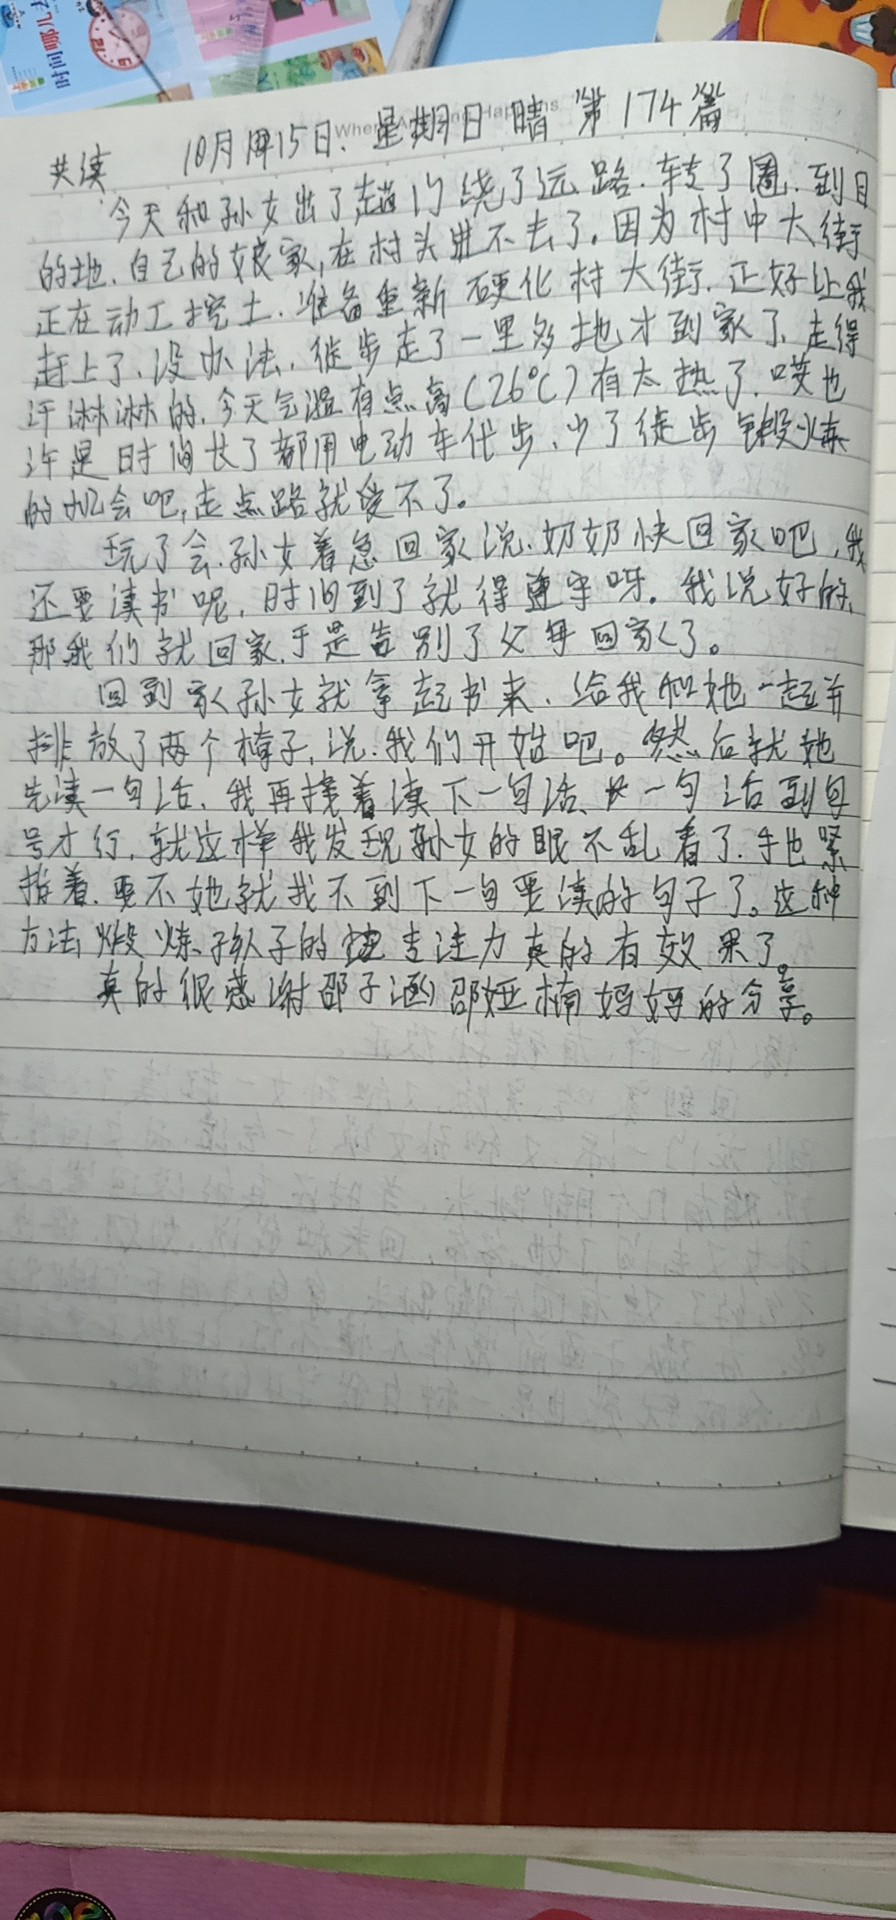 时间都去哪儿了
10月15日. 星期日 晴 第174篇
共读
今天和孙女出了趟门绕了远路.转了圈.到目
的地.自己的娘家,在村头进不去了.因为村中大街
正在动工挖土.准备重新硬化村大街.正好让我
赶上了.没办法.徒步走了一里多地才到家了.走得
汗淋淋的.今天气温有点高(26℃)有太热了.哎也
许是时间长了都用电动车代步.少了徒步锻炼
的机会吧,走点路就受不了。
玩了会.孙女着急回家说.奶奶快回家吧,我
还要读书呢,时间到了就得遵守呀.我说好的.
那我们就回家.于是告别了父母回家了。
回到家孙女就拿起书来.给我和她一起并
排放了两个椅子,说.我们开始吧。然后就她
先读一句话.我再接着读下一句话.一句话到句
号才行.就这样我发现孙女的眼不乱看了.手也紧
指着.要不她就找不到下一句要读的句子了。这种
方法煅炼孩子的专注力真的有效果了。
真的很感谢邵子涵邵娅楠妈妈的分享。